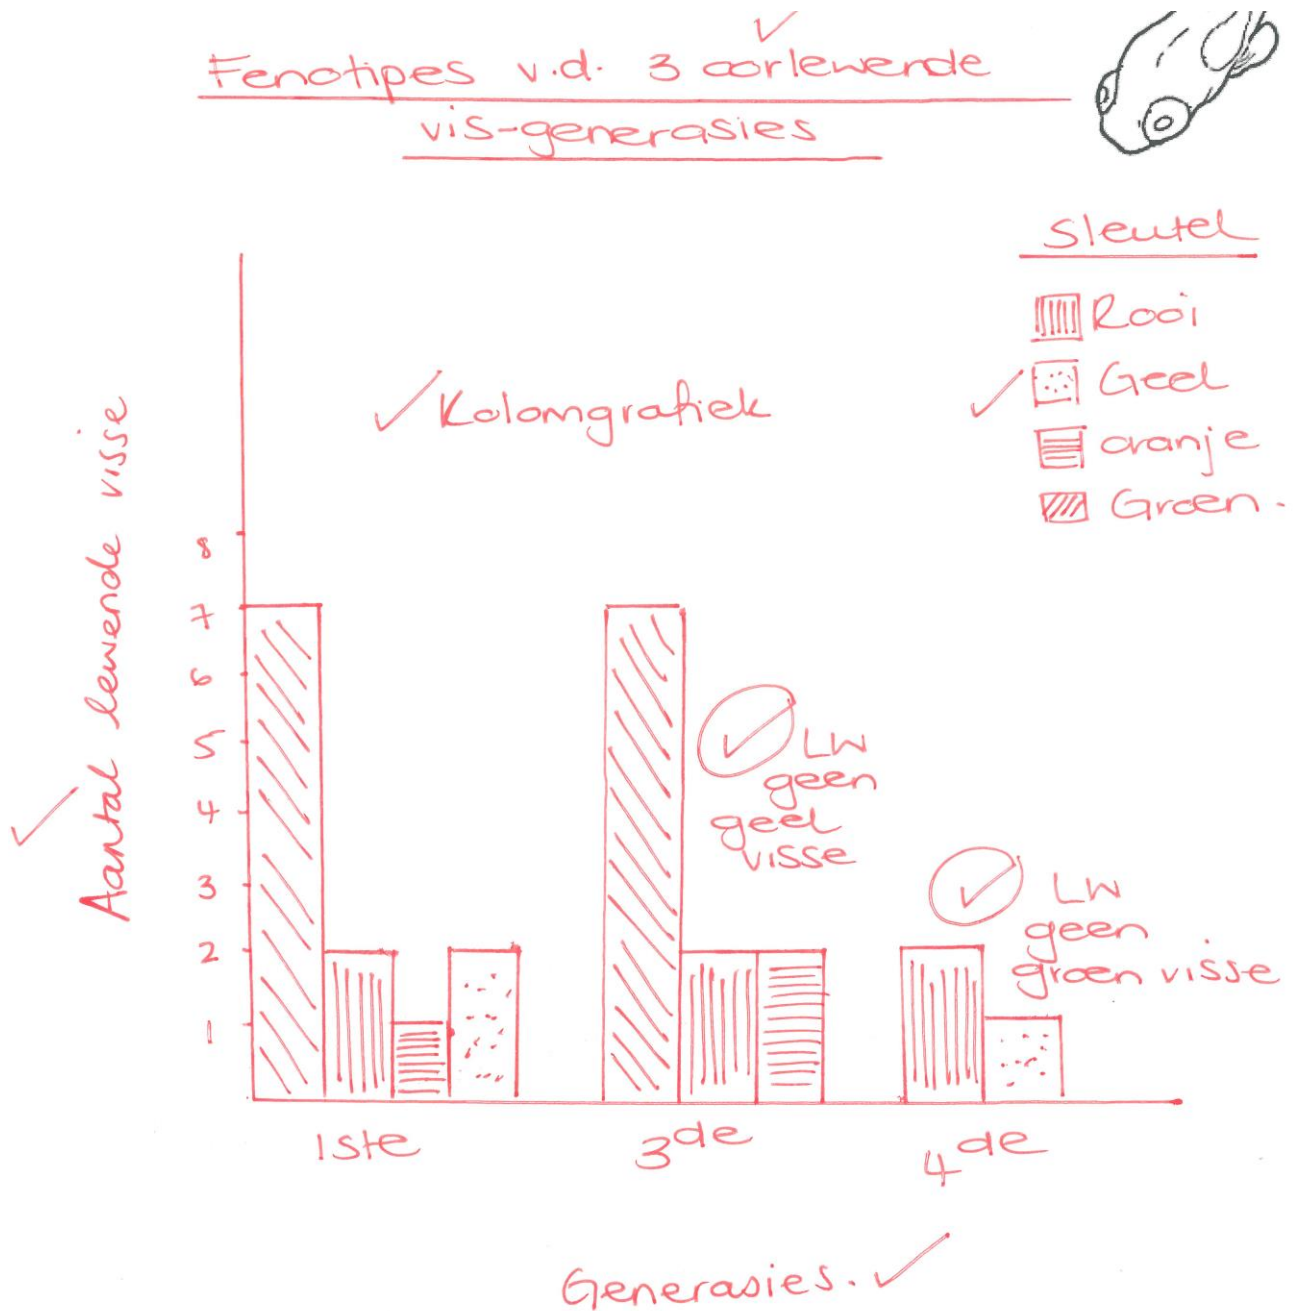 Fenotipes v.d. 3 oorlewende
vis-generasies
Sleutel
Rooi
Geel
oranje
Groen.
Kolomgrafiek
Aantal lewende visse
8
7
6
5
4
3
2
1
LW
geen
geel
visse
LW
geen
groen visse
1ste
3de
4de
Generasies.